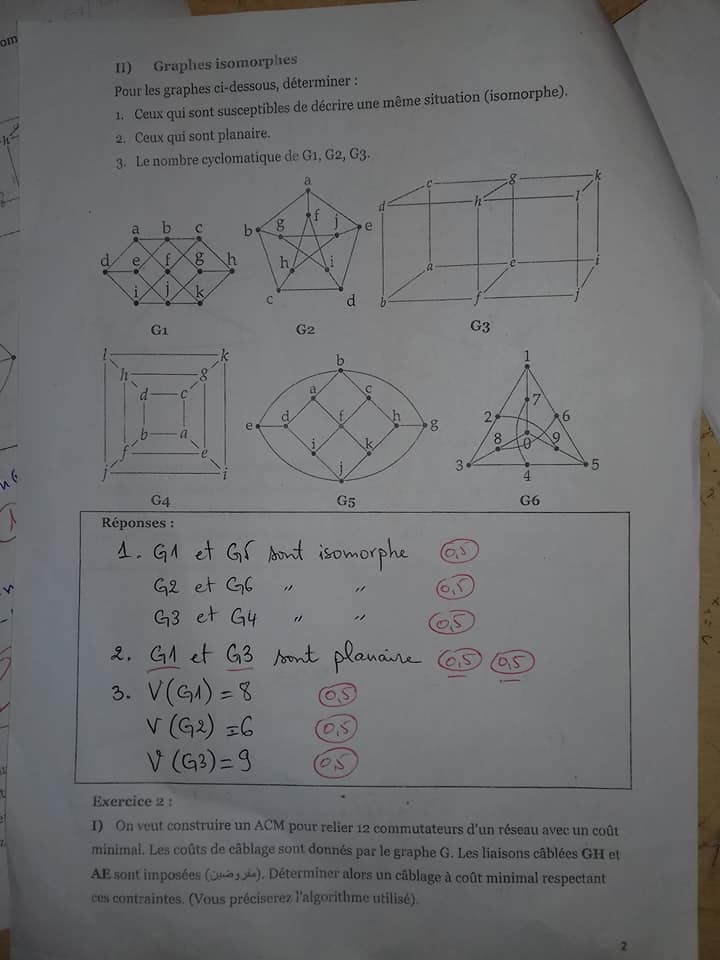 II) Graphes isomorphes
Pour les graphes ci-dessous, déterminer :
1. Ceux qui sont susceptibles de décrire une même situation (isomorphe).
2. Ceux qui sont planaire.
3. Le nombre cyclomatique de G1, G2, G3.
a b c
d e f g h
i j k
G1
a
b g f j e
h i
c d
G2
c g k
d h l
a e i
b f j
G3
l k
h g
d c
b a
f e
j i
G4
b
a c
e d f h g
i k
j
G5
1
7
2 6
8 0 9
3 4 5
G6
Réponses :
1. G1 et G5 sont isomorphe 0,5
G2 et G6 " " 0,5
G3 et G4 " " 0,5
2. G1 et G3 sont planaire 0,5 0,5
3. V(G1) = 8 0,5
V(G2) = 6 0,5
V(G3) = 9 0,5
Exercice 2 :
I) On veut construire un ACM pour relier 12 commutateurs d'un réseau avec un coût
minimal. Les coûts de câblage sont donnés par le graphe G. Les liaisons câblées GH et
AE sont imposées (مفروضين). Déterminer alors un câblage à coût minimal respectant
ces contraintes. (Vous préciserez l'algorithme utilisé).
2